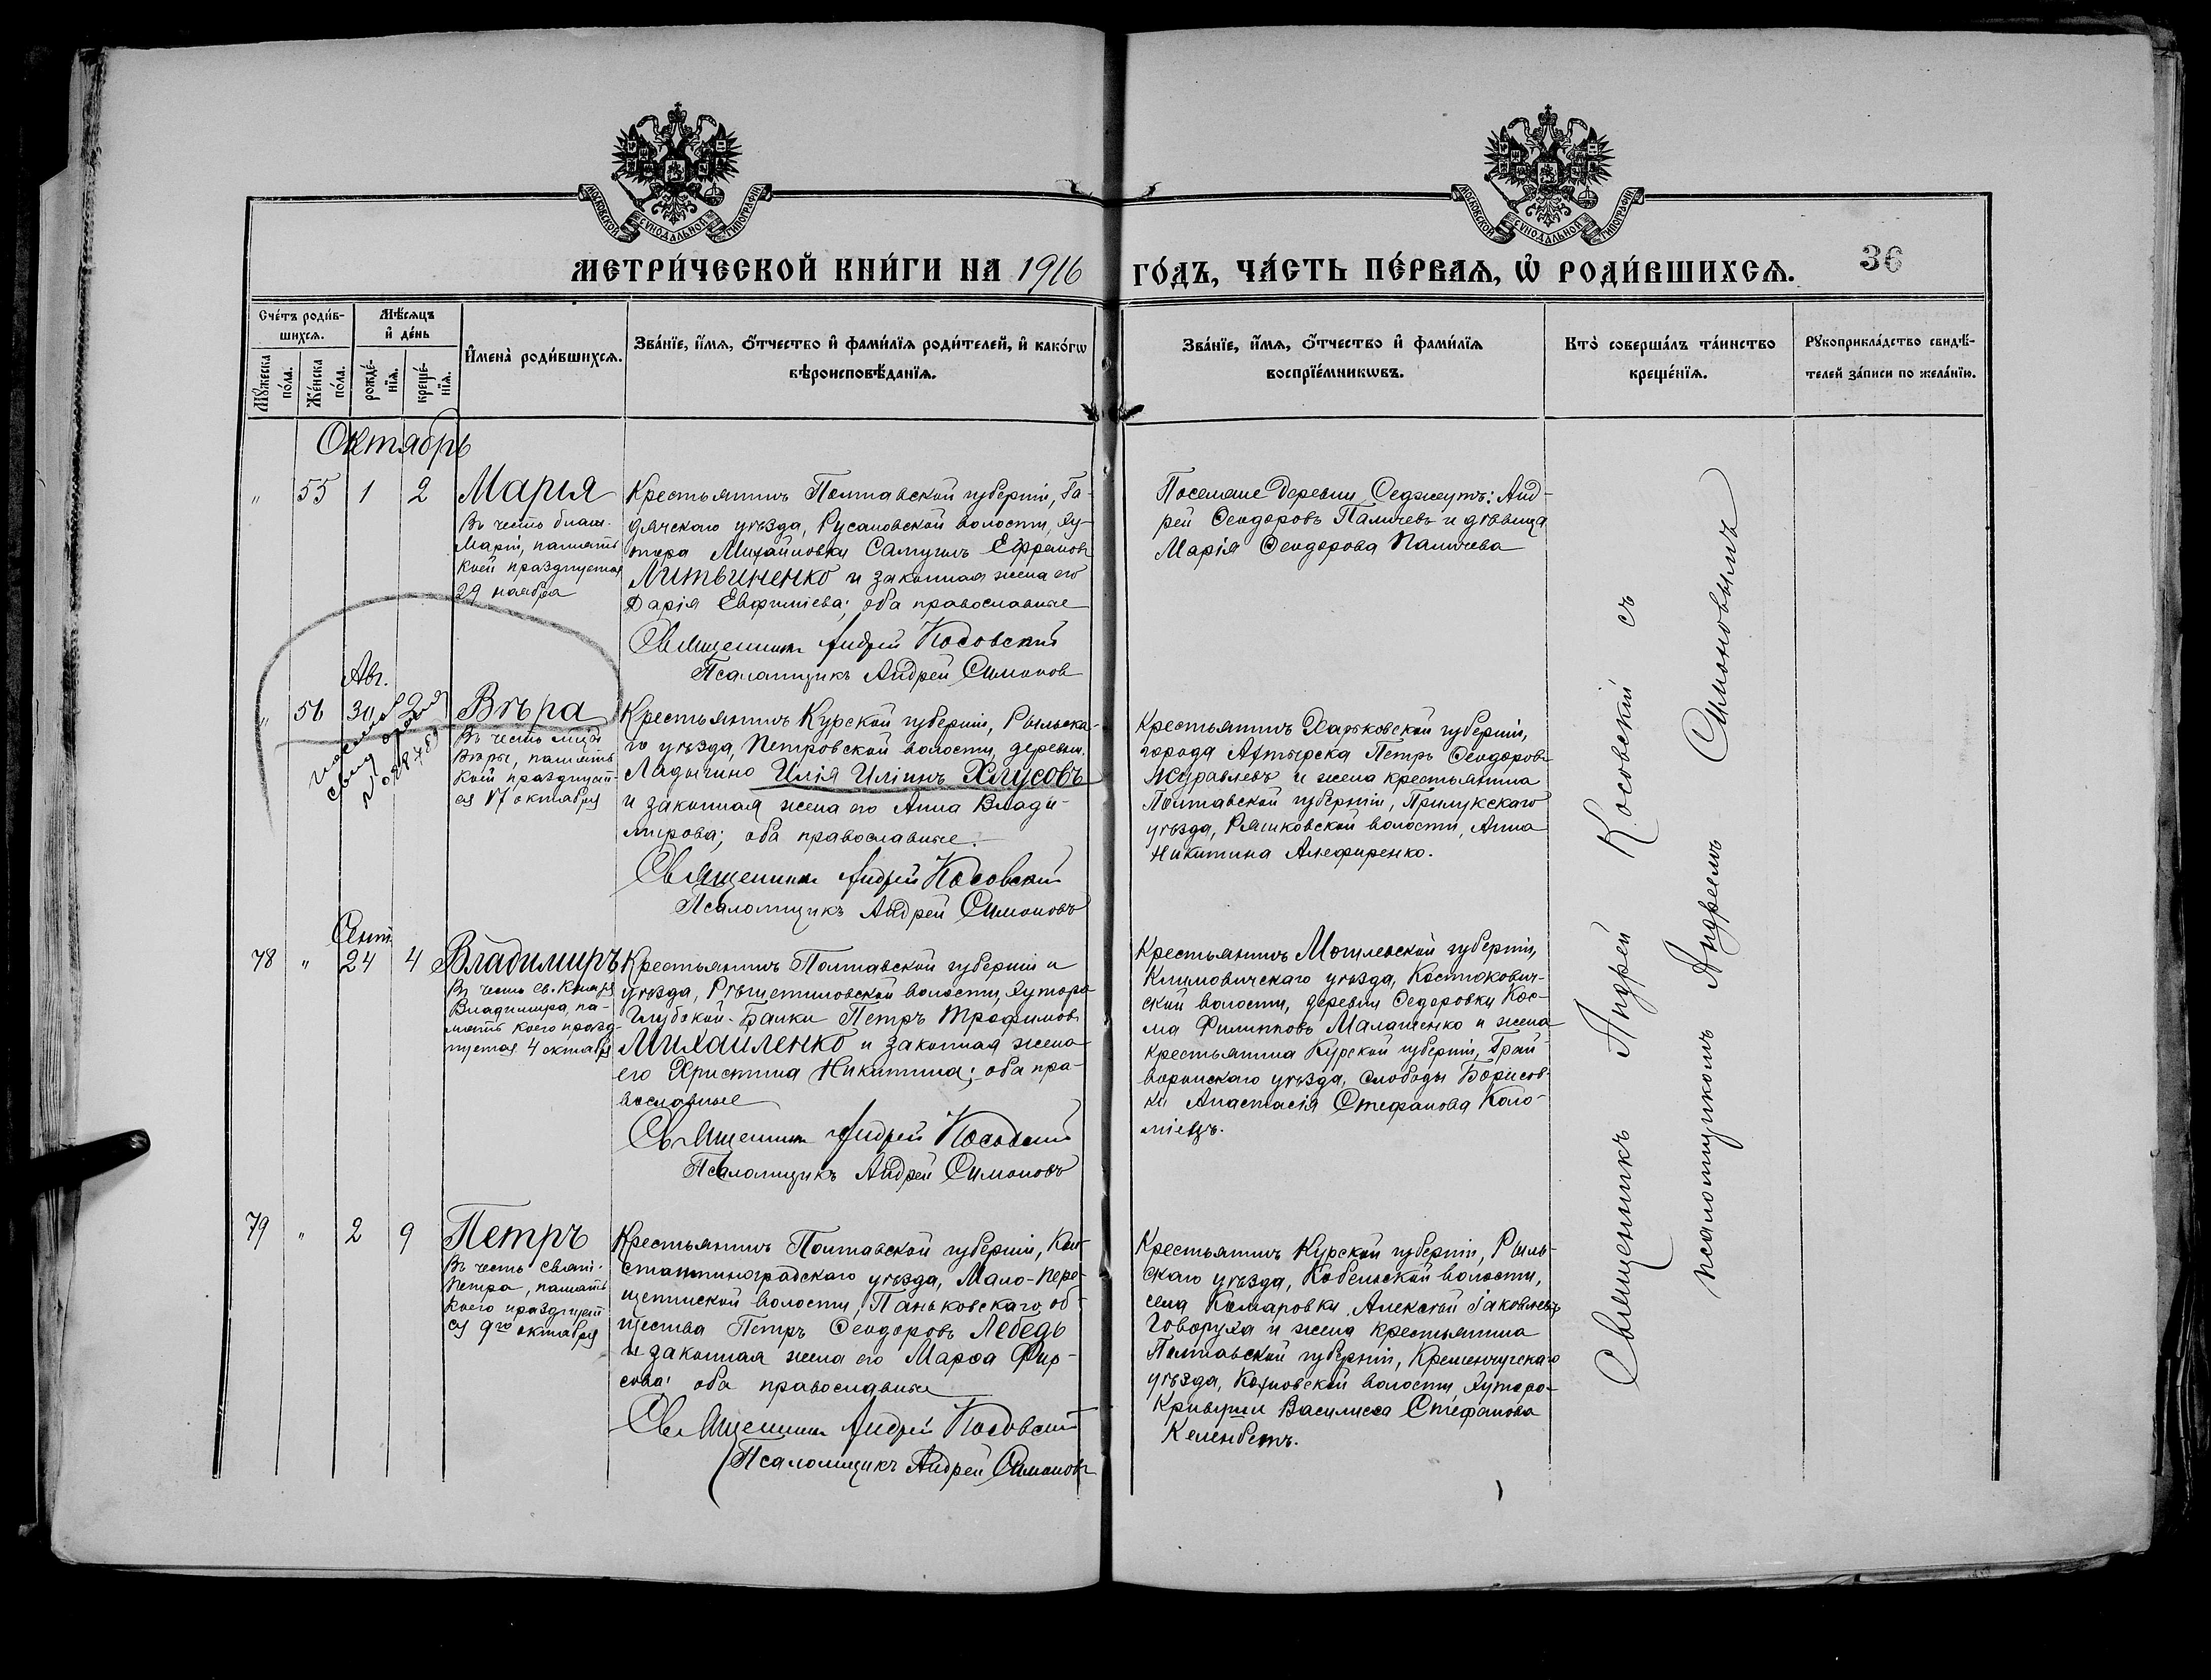 МОСКОВСКОЙ СѴНОДАЛЬНОЙ ТИПОГРАФІИ
МОСКОВСКОЙ СѴНОДАЛЬНОЙ ТИПОГРАФІИ
МЕТРИ́ЧЕСКОЙ КНИ́ГИ НА 1916 ГО́ДЪ, ЧА́СТЬ ПЕ́РВАѦ, Ѡ҆ РОДИ́ВШИХСѦ.
36
Сче́тъ роди́в-
шихсѧ.
Мꙋ́жеска
по́ла.
Же́нска
по́ла.
Мѣ́сѧцъ
и҆ де́нь
рожде́-
нїѧ.
креще́-
нїѧ.
И҆мена̀ роди́вшихсѧ.
Зва́нїе, и҆́мѧ, ѻ҆́тчество и҆ фами́лїѧ роди́телей, и҆ како́гѡ
вѣроисповѣ́данїѧ.
Зва́нїе, и҆́мѧ, ѻ҆́тчество и҆ фами́лїѧ
воспрїе́мникѡвъ.
Кто̀ соверша́лъ та́инство
креще́нїѧ.
Рꙋкоприкла́дство свидѣ́-
телей за́писи по жела́нїю.
Октябрь
" 55 1 2 Марія
Въ честь блаж.
Маріи, память
коей празднуется
29 ноября
Крестьянинъ Полтавской губерніи, Га-
дячскаго уѣзда, Русановской волости, ху-
тора Михайловки Самуилъ Ефремовъ
Литвиненко и законная жена его
Дарія Евфиміева; оба православные
Священникъ Андрей Косовский
Псаломщикъ Андрей Симонов
Поселяне деревни Седжеутъ: Анд-
рей Ѳеодоровъ Паличевъ и дѣвица
Марія Ѳеодорова Паличева
Авг.
" 56 30 2 Вѣра
Въ честь муч.
Вѣры, память
коей празднует-
ся 17 октября
Крестьянинъ Курской губерніи, Рыльска-
го уѣзда, Петровской волости, деревни
Ладыгино Илія Иліинъ Хлусовъ
и законная жена его Анна Влади-
мирова; оба православные.
Священникъ Андрей Косовский
Псаломщикъ Андрей Симоновъ
Крестьянинъ Харьковской губерніи,
города Ахтырска Петръ Ѳеодоровъ
Журавлевъ и жена крестьянина
Полтавской губерніи, Прилукскаго
уѣзда, Ряшковской волости, Анна
Никитина Алефиренко.
Сент.
78 " 24 4 Владимиръ
Въ честь св. Князя
Владимира, па-
мять коего празд-
нуется 4 октября
Крестьянинъ Полтавской губерніи и
уѣзда, Рѣшетиловской волости, хутора
Глубокой-Балки Петръ Трофимовъ
Михайленко и законная жена
его Христина Никитина; оба пра-
вославные
Священникъ Андрей Косовский
Псаломщикъ Андрей Симоновъ
Крестьянинъ Могилевской губерніи,
Климовичскаго уѣзда, Костюкович-
ской волости, деревни Ѳедоровки Кос-
ма Филипповъ Малашенко и жена
крестьянина Курской губерніи, Грай-
воронскаго уѣзда, слободы Борисов-
ки Анастасія Стефанова Коло-
міецъ.
79 " 2 9 Петръ
Въ честь свят.
Петра, память
коего празднует-
ся 9го октября
Крестьянинъ Полтавской губерніи, Кон-
стантиноградскаго уѣзда, Мало-Пере-
щепинской волости, Паньковскаго об-
щества Петръ Ѳеодоровъ Лебедь
и законная жена его Марѳа Фир-
сова; оба православные
Священникъ Андрей Косовский
Псаломщикъ Андрей Симоновъ
Крестьянинъ Курской губерніи, Рыль-
скаго уѣзда, Кобельской волости,
села Комаровки, Алексѣй Іаковлевъ
Говоруха и жена крестьянина
Полтавской губерніи, Кременчугскаго
уѣзда, Кохновской волости, хутора
Кривуши Василиса Стефанова
Келенбетъ.
Священникъ Андрей Косовский съ
псаломщикомъ Андреемъ Симоновымъ